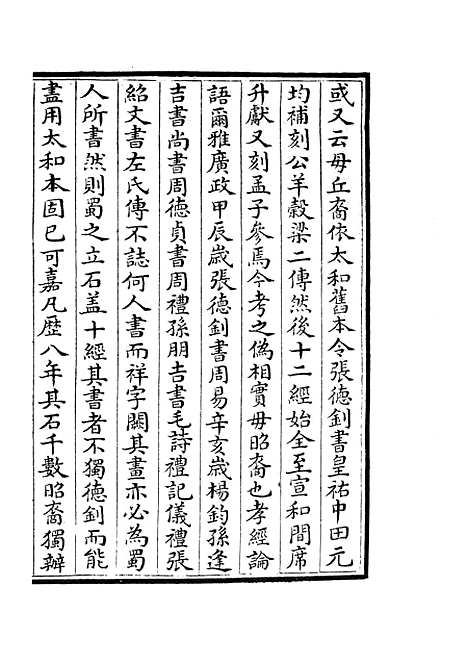 或又云毋丘裔依太和舊本令張德釗書皇祐中田元
均補刻公羊穀梁二傳然後十二經始全至宣和間席
升獻又刻孟子參焉今考之偽相實毋昭裔也孝經論
語爾雅廣政甲辰歲張德釗書周易辛亥歲楊鈞孫逢
吉書尚書周德貞書周禮孫朋吉書毛詩禮記儀禮張
紹文書左氏傳不誌何人書而祥字闕其畫亦必為蜀
人所書然則蜀之立石盖十經其書者不獨德釗而能
盡用太和本固已可嘉凡歷八年其石千數昭裔獨辦